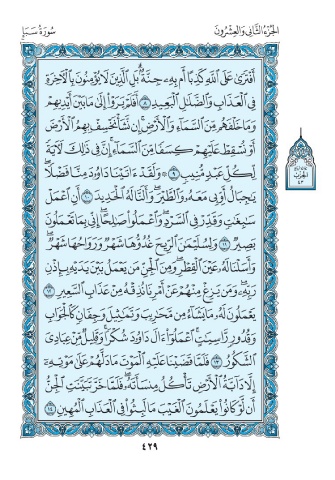 الجزء الثاني والعشرون
سورة سبإ
أَفْتَرَىٰ عَلَى ٱللَّهِ كَذِبًا أَم بِهِۦ جِنَّةٌۢ ۗ بَلِ ٱلَّذِينَ لَا يُؤْمِنُونَ بِٱلْءَاخِرَةِ
فِى ٱلْعَذَابِ وَٱلضَّلَٰلِ ٱلْبَعِيدِ ٨ أَفَلَمْ يَرَوْا۟ إِلَىٰ مَا بَيْنَ أَيْدِيهِمْ
وَمَا خَلْفَهُم مِّنَ ٱلسَّمَآءِ وَٱلْأَرْضِ ۚ إِن نَّشَأْ نَخْسِفْ بِهِمُ ٱلْأَرْضَ
أَوْ نُسْقِطْ عَلَيْهِمْ كِسَفًا مِّنَ ٱلسَّمَآءِ ۚ إِنَّ فِى ذَٰلِكَ لَءَايَةً
لِّكُلِّ عَبْدٍ مُّنِيبٍ ٩ ۞ وَلَقَدْ ءَاتَيْنَا دَاوُۥدَ مِنَّا فَضْلًا ۖ
يَٰجِبَالُ أَوِّبِى مَعَهُۥ وَٱلطَّيْرَ ۖ وَأَلَنَّا لَهُ ٱلْحَدِيدَ ١٠ أَنِ ٱعْمَلْ
سَٰبِغَٰتٍ وَقَدِّرْ فِى ٱلسَّرْدِ ۖ وَٱعْمَلُوا۟ صَٰلِحًا ۖ إِنِّى بِمَا تَعْمَلُونَ
بَصِيرٌ ١١ وَلِسُلَيْمَٰنَ ٱلرِّيحَ غُدُوُّهَا شَهْرٌ وَرَوَاحُهَا شَهْرٌ ۖ
وَأَسَلْنَا لَهُۥ عَيْنَ ٱلْقِطْرِ ۖ وَمِنَ ٱلْجِنِّ مَن يَعْمَلُ بَيْنَ يَدَيْهِ بِإِذْنِ
رَبِّهِۦ ۖ وَمَن يَزِغْ مِنْهُمْ عَنْ أَمْرِنَا نُذِقْهُ مِنْ عَذَابِ ٱلسَّعِيرِ ١٢
يَعْمَلُونَ لَهُۥ مَا يَشَآءُ مِن مَّحَٰرِيبَ وَتَمَٰثِيلَ وَجِفَانٍ كَٱلْجَوَابِ
وَقُدُورٍ رَّاسِيَٰتٍ ۚ ٱعْمَلُوٓا۟ ءَالَ دَاوُۥدَ شُكْرًا ۚ وَقَلِيلٌ مِّنْ عِبَادِىَ
ٱلشَّكُورُ ١٣ فَلَمَّا قَضَيْنَا عَلَيْهِ ٱلْمَوْتَ مَا دَلَّهُمْ عَلَىٰ مَوْتِهِۦٓ
إِلَّا دَآبَّةُ ٱلْأَرْضِ تَأْكُلُ مِنسَأَتَهُۥ ۖ فَلَمَّا خَرَّ تَبَيَّنَتِ ٱلْجِنُّ
أَن لَّوْ كَانُوا۟ يَعْلَمُونَ ٱلْغَيْبَ مَا لَبِثُوا۟ فِى ٱلْعَذَابِ ٱلْمُهِينِ ١٤
الحزب
٤٣
٤٢٩